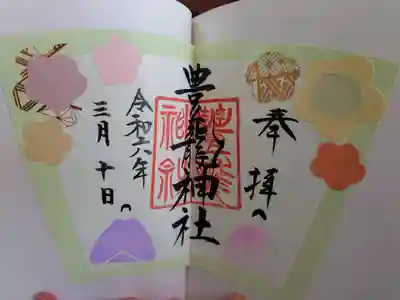 奉拝
豊龍神社
令和六年
三月十日